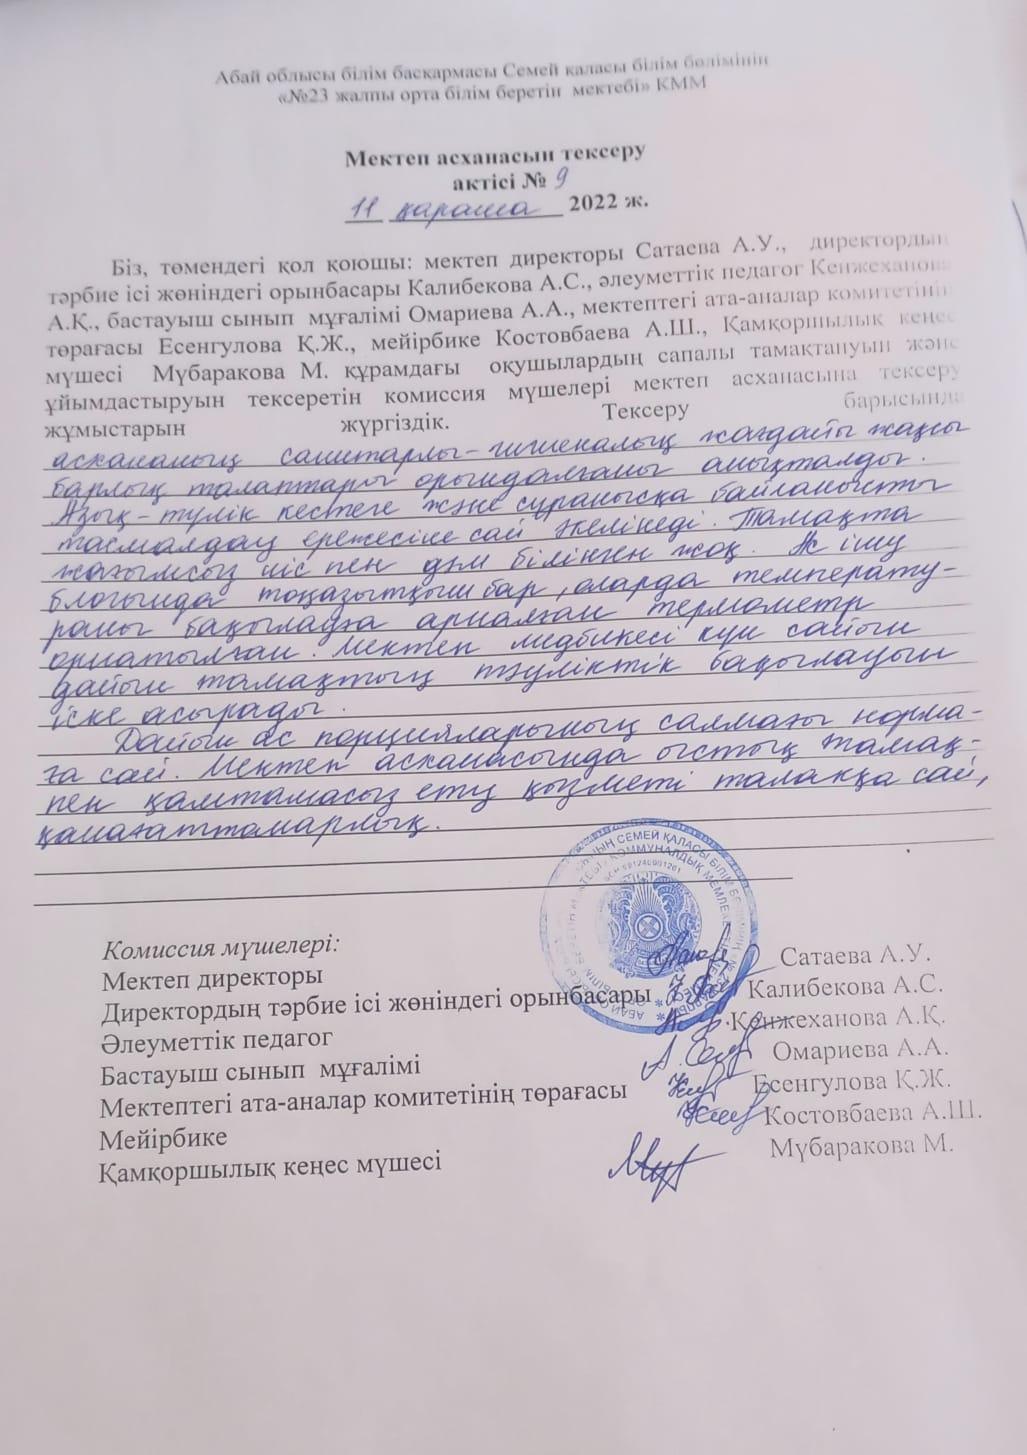 Абай облысы білім басқармасы Семей қаласы білім бөлімінің
«№23 жалпы орта білім беретін мектебі» КММ
Мектеп асханасын тексеру
актісі № 9
11 қараша 2022 ж.
Біз, төмендегі қол қоюшы: мектеп директоры Сатаева А.У., директордың
тәрбие ісі жөніндегі орынбасары Калибекова А.С., әлеуметтік педагог Кенжеханова
А.Қ., бастауыш сынып мұғалімі Омариева А.А., мектептегі ата-аналар комитетінің
төрағасы Есенгулова Қ.Ж., мейірбике Костовбаева А.Ш., Қамқоршылық кеңес
мүшесі Мүбаракова М. құрамдағы оқушылардың сапалы тамақтануын және
ұйымдастыруын тексеретін комиссия мүшелері мектеп асханасына тексеру
жұмыстарын жүргіздік. Тексеру барысында
асхананың санитарлы-гигиеналық жағдайы жақсы
барлық талаптары орындалғаны анықталды.
Азық-түлік кестеге және сұранысқа байланысты
тасмалдау ережесіне сай әкелінеді. Тамақта
жағымсыз иіс пен дәм білінген жоқ. Ас ішу
блогында тоңазытқыш бар, оларда температу-
раны бақылауға арналған термометр
орнатылған. Мектеп медбикесі күн сайын
дайын тамақтың тәуліктік бақылауын
іске асырады.
Дайын ас порцияларының салмағы норма-
ға сай. Мектеп асханасында ыстық тамақ-
пен қамтамасыз ету қызметі талапқа сай,
қанағаттанарлық.
Комиссия мүшелері:
Мектеп директоры Сатаева А.У.
Директордың тәрбие ісі жөніндегі орынбасары Калибекова А.С.
Әлеуметтік педагог Кенжеханова А.Қ.
Бастауыш сынып мұғалімі Омариева А.А.
Мектептегі ата-аналар комитетінің төрағасы Есенгулова Қ.Ж.
Мейірбике Костовбаева А.Ш.
Қамқоршылық кеңес мүшесі Мүбаракова М.